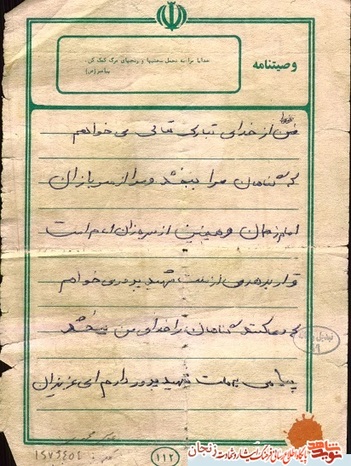 وصیتنامه
خدایا مرا به تحمل سختیها و رنجهای مرگ کمک کن.
پیامبر (ص)
من از خدای تبارک تعالی می خواهم
که گناهان مرا ببخشد و مرا از سربازان
امام زمان و همچنین از سربازان امام است
قرار بدهد و از امت شهید پرور می خواهم
که دعا کنند گناهان را خدای من ببخشد
پیامی به امت شهید پرور دارم ای عزیزان
۱۱۲
نوید شاهد
پایگاه اطلاع رسانی فرهنگ ایثار و شهادت زنجان